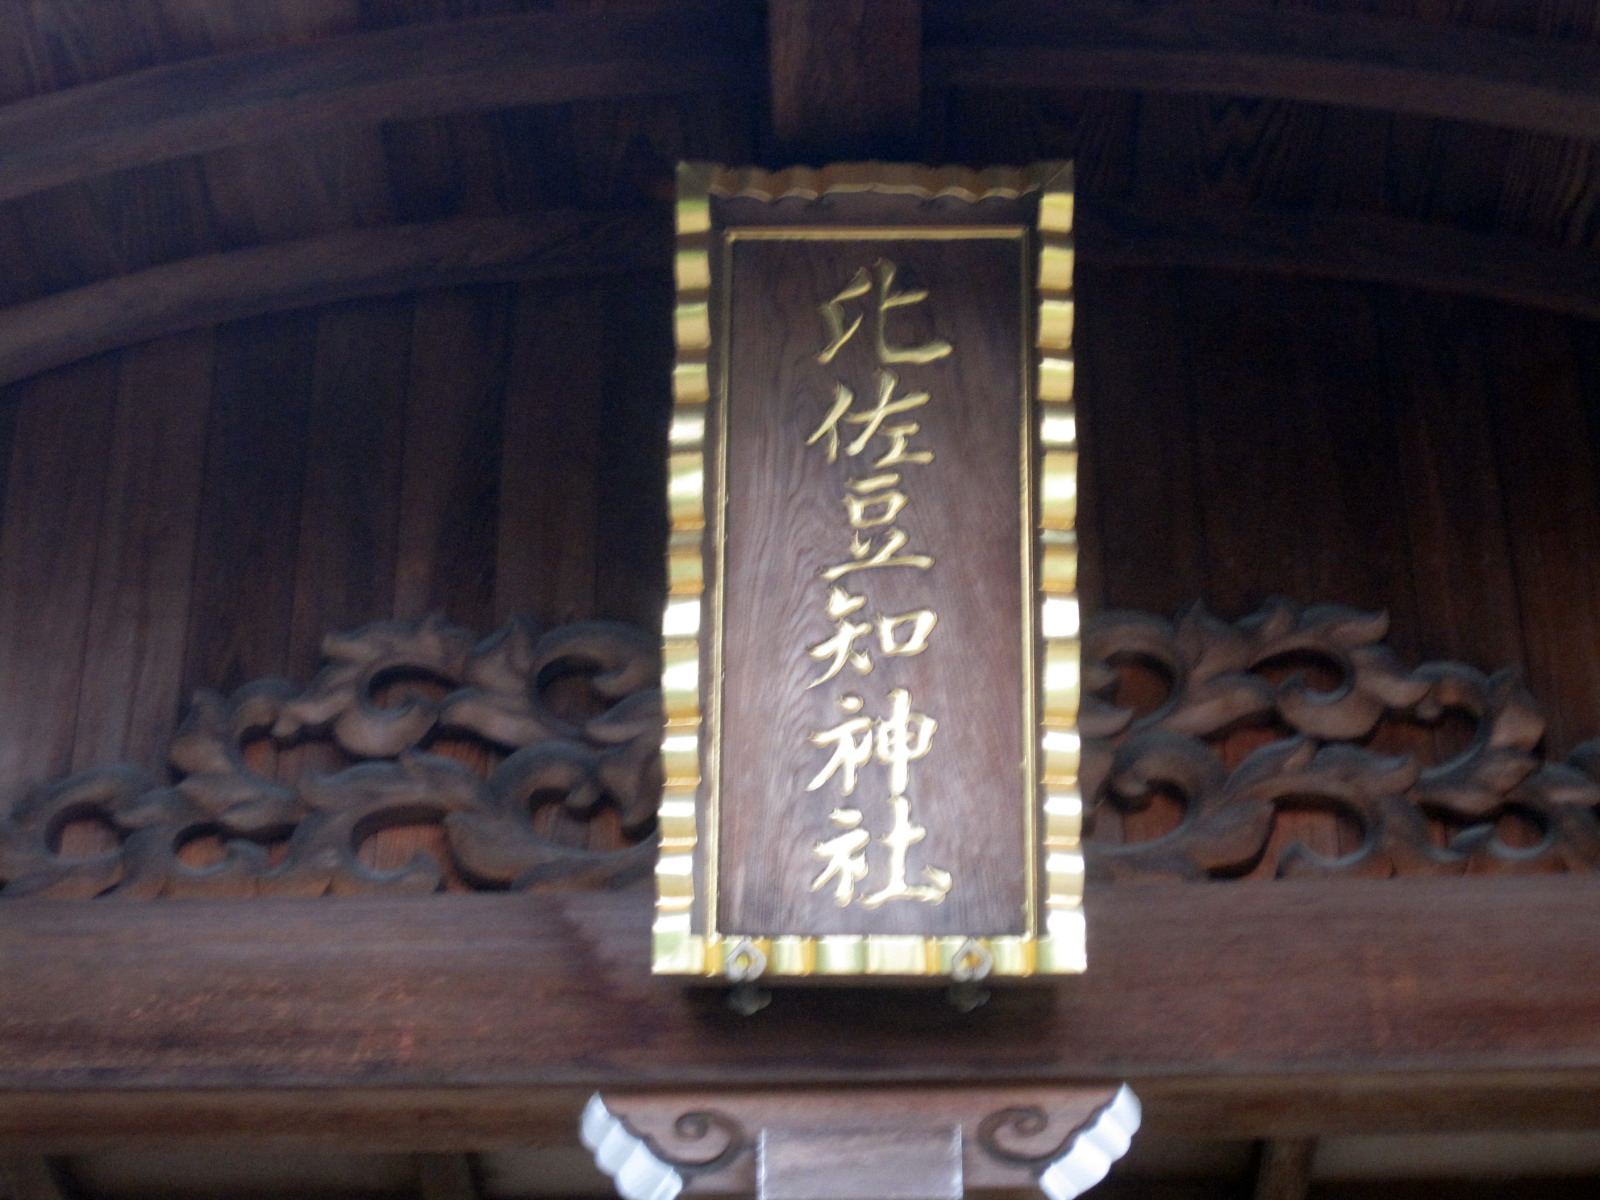 北佐豆知神社